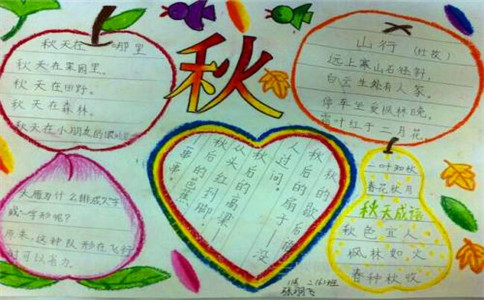 秋天在 哪里
秋天在果园里,
秋天在田野。
秋天在森林。
秋天在小朋友的
秋
山行 (杜牧)
远上寒山石径斜,
白云生处有人家。
停车坐爱枫林晚,
霜叶红于二月花。
秋的歇后语
秋后的扇子—没
人过问。
秋后的高粱—
从头红到脚。
秋后的
大雁为什么排成人字
或一字形呢?
原来,这种队形在飞行
时可以省力。
一叶知秋
春花秋月
秋天成语
秋色宜人
枫林如火
春种秋收
班
张 飞